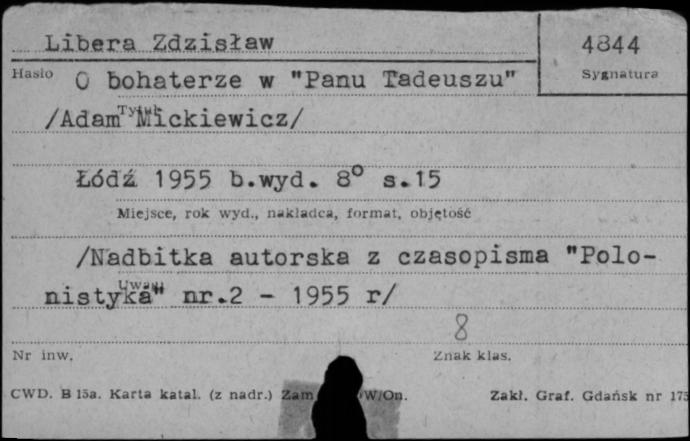 Libera Zdzisław
4844
Hasło
Sygnatura
O bohaterze w "Panu Tadeuszu"
Tytuł
/Adam Mickiewicz/
Łódź 1955 b.wyd. 8° s.15
Miejsce, rok wyd., nakładca, format, objętość
/Nadbitka autorska z czasopisma "Polo-
Uwagi
nistyka" nr.2 - 1955 r/
8
Nr inw.
Znak klas.
CWD. B 15a. Karta katal. (z nadr.) Zam W/On.
Zakł. Graf. Gdańsk nr 175